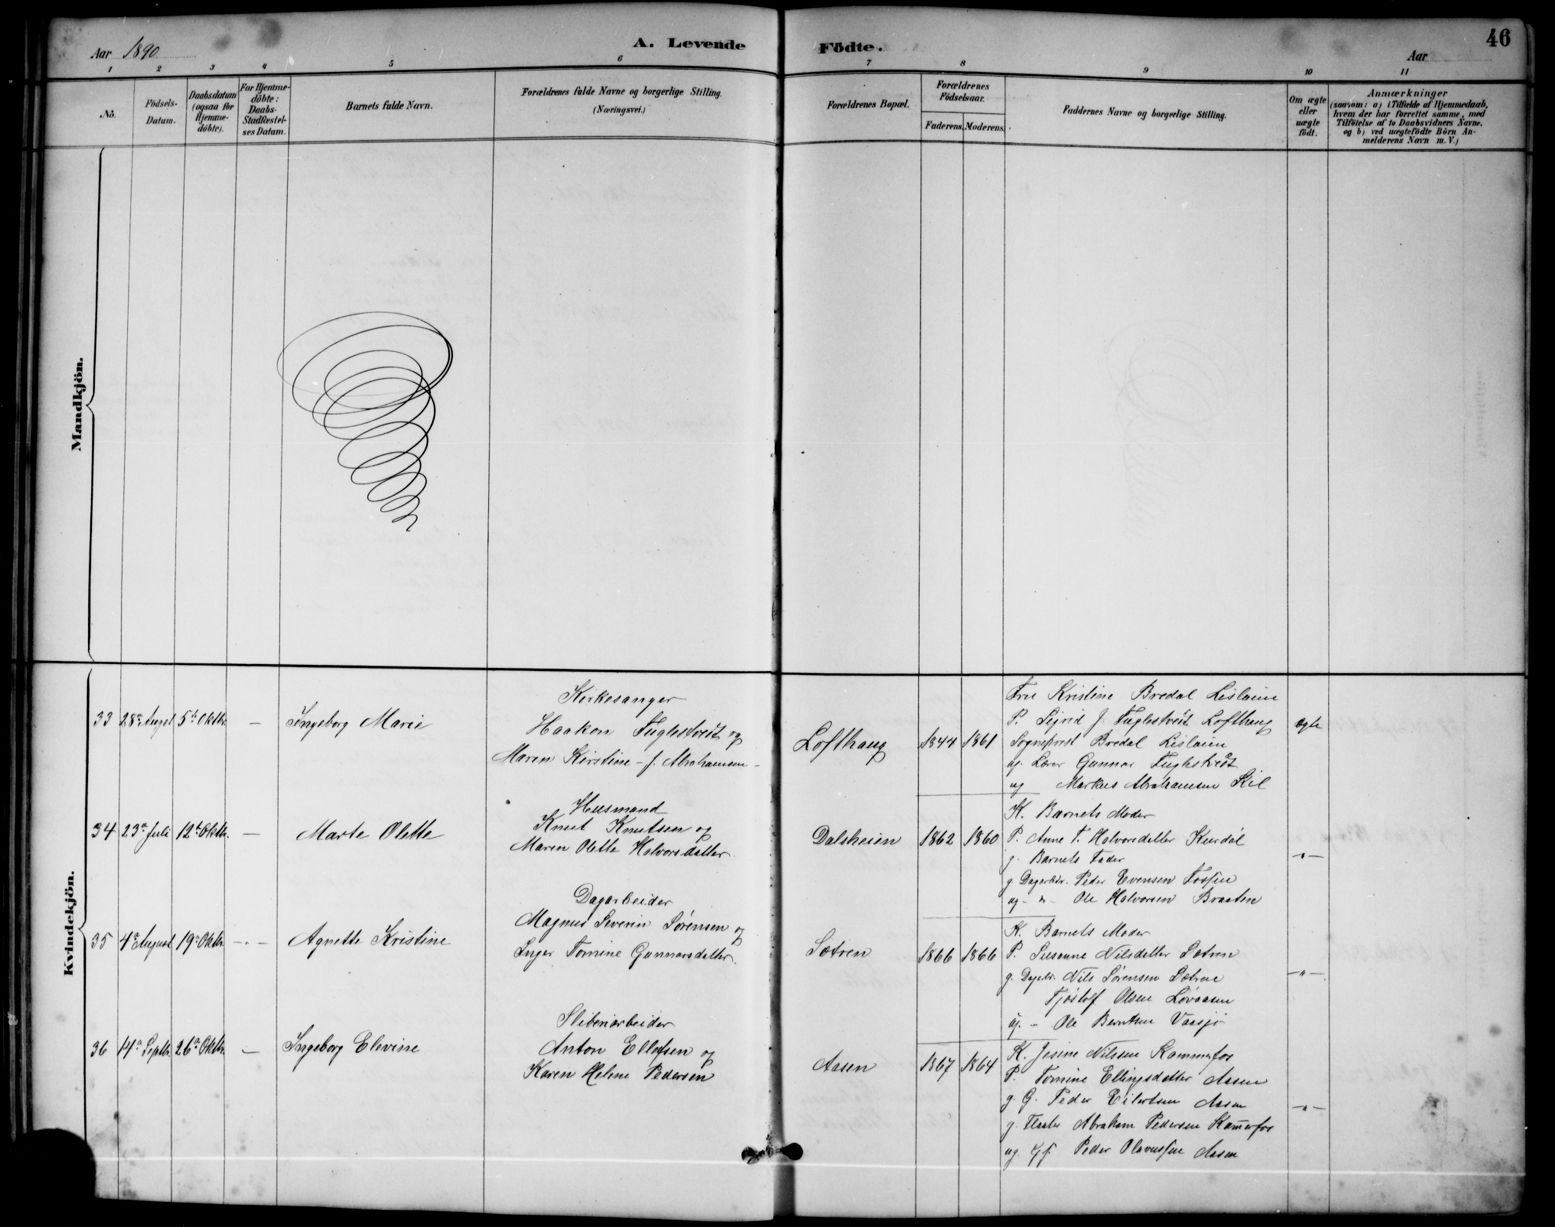 Aar 1890
A. Levende
Födte.
Aar
46
1 2 3 4 5 6 7 8 9 10 11
No.
Födsels-
Datum.
Daabsdatum
(ogsaa for
Hjemme-
döbte).
For Hjemme-
döbte:
Daabs-
Stadfæstel-
ses Datum.
Barnets fulde Navn.
Forældrenes fulde Navne og borgerlige Stilling.
(Næringsvei.)
Forældrenes Bopæl.
Forældrenes
Födselsaar.
Faderens. Moderens.
Faddernes Navne og borgerlige Stilling.
Om ægte
eller
uægte
födt.
Anmærkninger
(saasom: a) i Tilfælde af Hjemmedaab,
hvem der har forrettet samme, med
Tilföielse af to Daabsvidners Navne.
og b) ved uægtefödte Börn An-
melderens Navn m. V.)
Mandkjön.
Kvindekjön.
33 28de August 5te Oktbr. — Ingeborg Marie
Kirkesanger
Haakon Fuglestveit og
Maren Kirstine - f. Abrahamsen -
Lofthaug 1844 1861
Fru Kristine Bredal Lislaien
P. Sigrid J. Fuglestveit Lofthaug
Sogneprest Bredal Lislaien
ug. Lærer Gunnar Fuglestveit
ug — Markus Abrahamsen Kil
ægte
34 23de Juli 12te Oktbr. — Marte Olette
Husmand
Knut Knutsen og
Maren Olette Halvorsdatter.
Dalsheien 1862 1860
K. Barnets Moder
P. Anne T. Halvorsdatter
g. Barnets Fader
g. Dagarbdr. Peder Evensen
ug - " - Ole Halvorsen Braaten
—"—
35 4de August 19de Oktbr. —.— Agnette Kristine
Dagarbeider
Magnus Severin Sørensen og
Inger Tomine Gunnarsdatter.
Sætren 1866 1866
K. Barnets Moder
P. Susanne Nilsdatter Sætren
g. Dagarb. Nils Sørensen Sætren
Tjøstolf Olsen Løvaasen
ug. - Ole Berntsen Vaasjø
—"—
36 14de Septbr. 26de Oktbr. — Ingeborg Elevine
Sliberiarbeider
Anton Ellefsen og
Karen Helene Pedersen
Aasen 1867 1864
K. Jesine Nilsen Kammerfos
P. Tomine Ellingsdatter Aasen
g. G. Peder Eilertsen Aasen
g. Abraham Pedersen Kammerfos
ug. Peder Olaves­sen Aasen
—"—